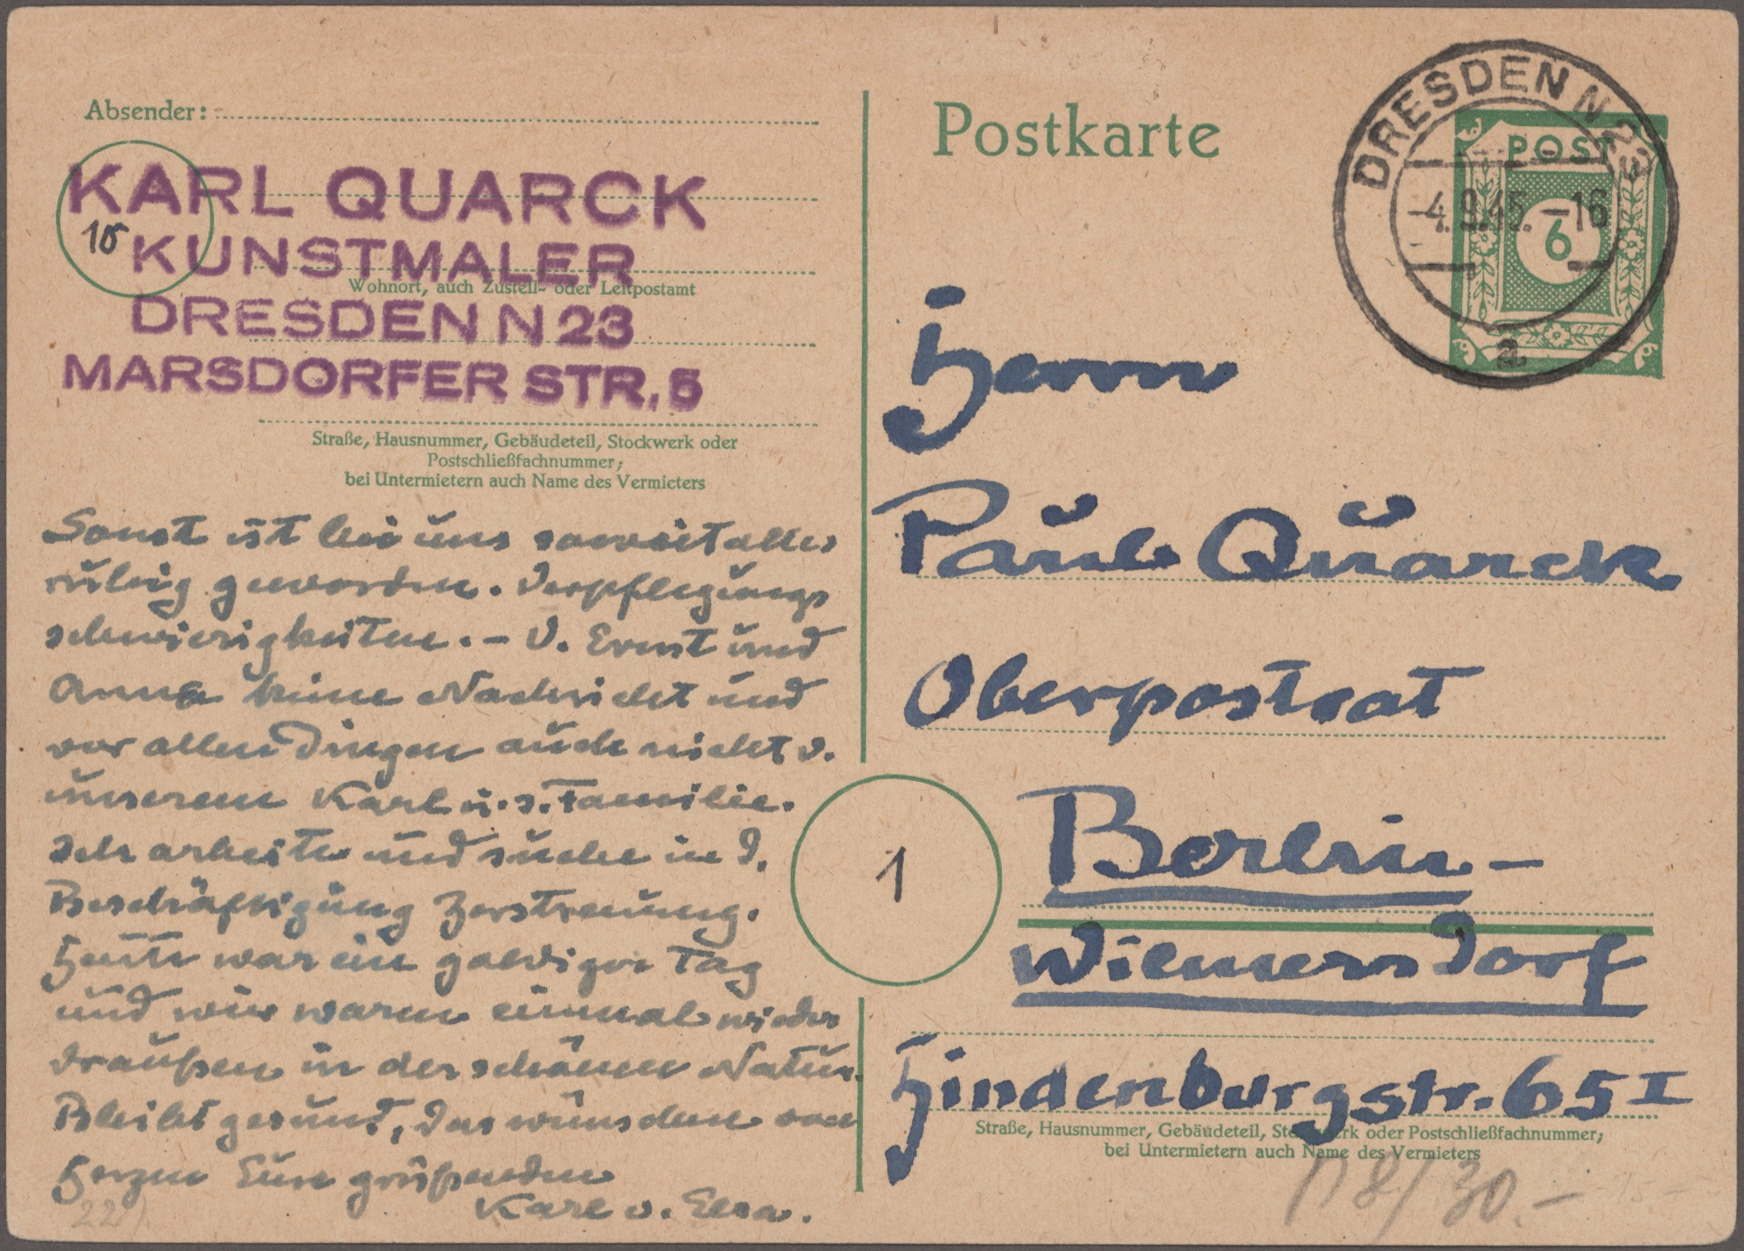 Absender:
KARL QUARCK
15
KUNSTMALER
Wohnort, auch Zustell- oder Leitpostamt
DRESDEN N 23
MARSDORFER STR. 5
Straße, Hausnummer, Gebäudeteil, Stockwerk oder
Postschließfachnummer;
bei Untermietern auch Name des Vermieters
Sonst ist bei uns soweit alles
ruhig geworden. Verpflegungs
schwierigkeiten. - V. Ernst und
Anna keine Nachricht und
vor allen Dingen auch nicht v.
unserem Karl u. s. Familie.
Ich arbeite und suche in d.
Beschäftigung Zerstreuung.
Heute war ein goldiger Tag
und wir waren einmal wieder
draußen in der schönen Natur.
Bleibt gesund, das wünschen von
Herzen Eure grüßenden
Karl u. Elsa.
Postkarte
DRESDEN N 23
-4.9.45.-16
a
POST
6
Herrn
Paul Quarck
Oberpostrat
1
Berlin-
Wilmersdorf
Hindenburgstr. 65 I
Straße, Hausnummer, Gebäudeteil, Stockwerk oder Postschließfachnummer;
bei Untermietern auch Name des Vermieters
8/30.-